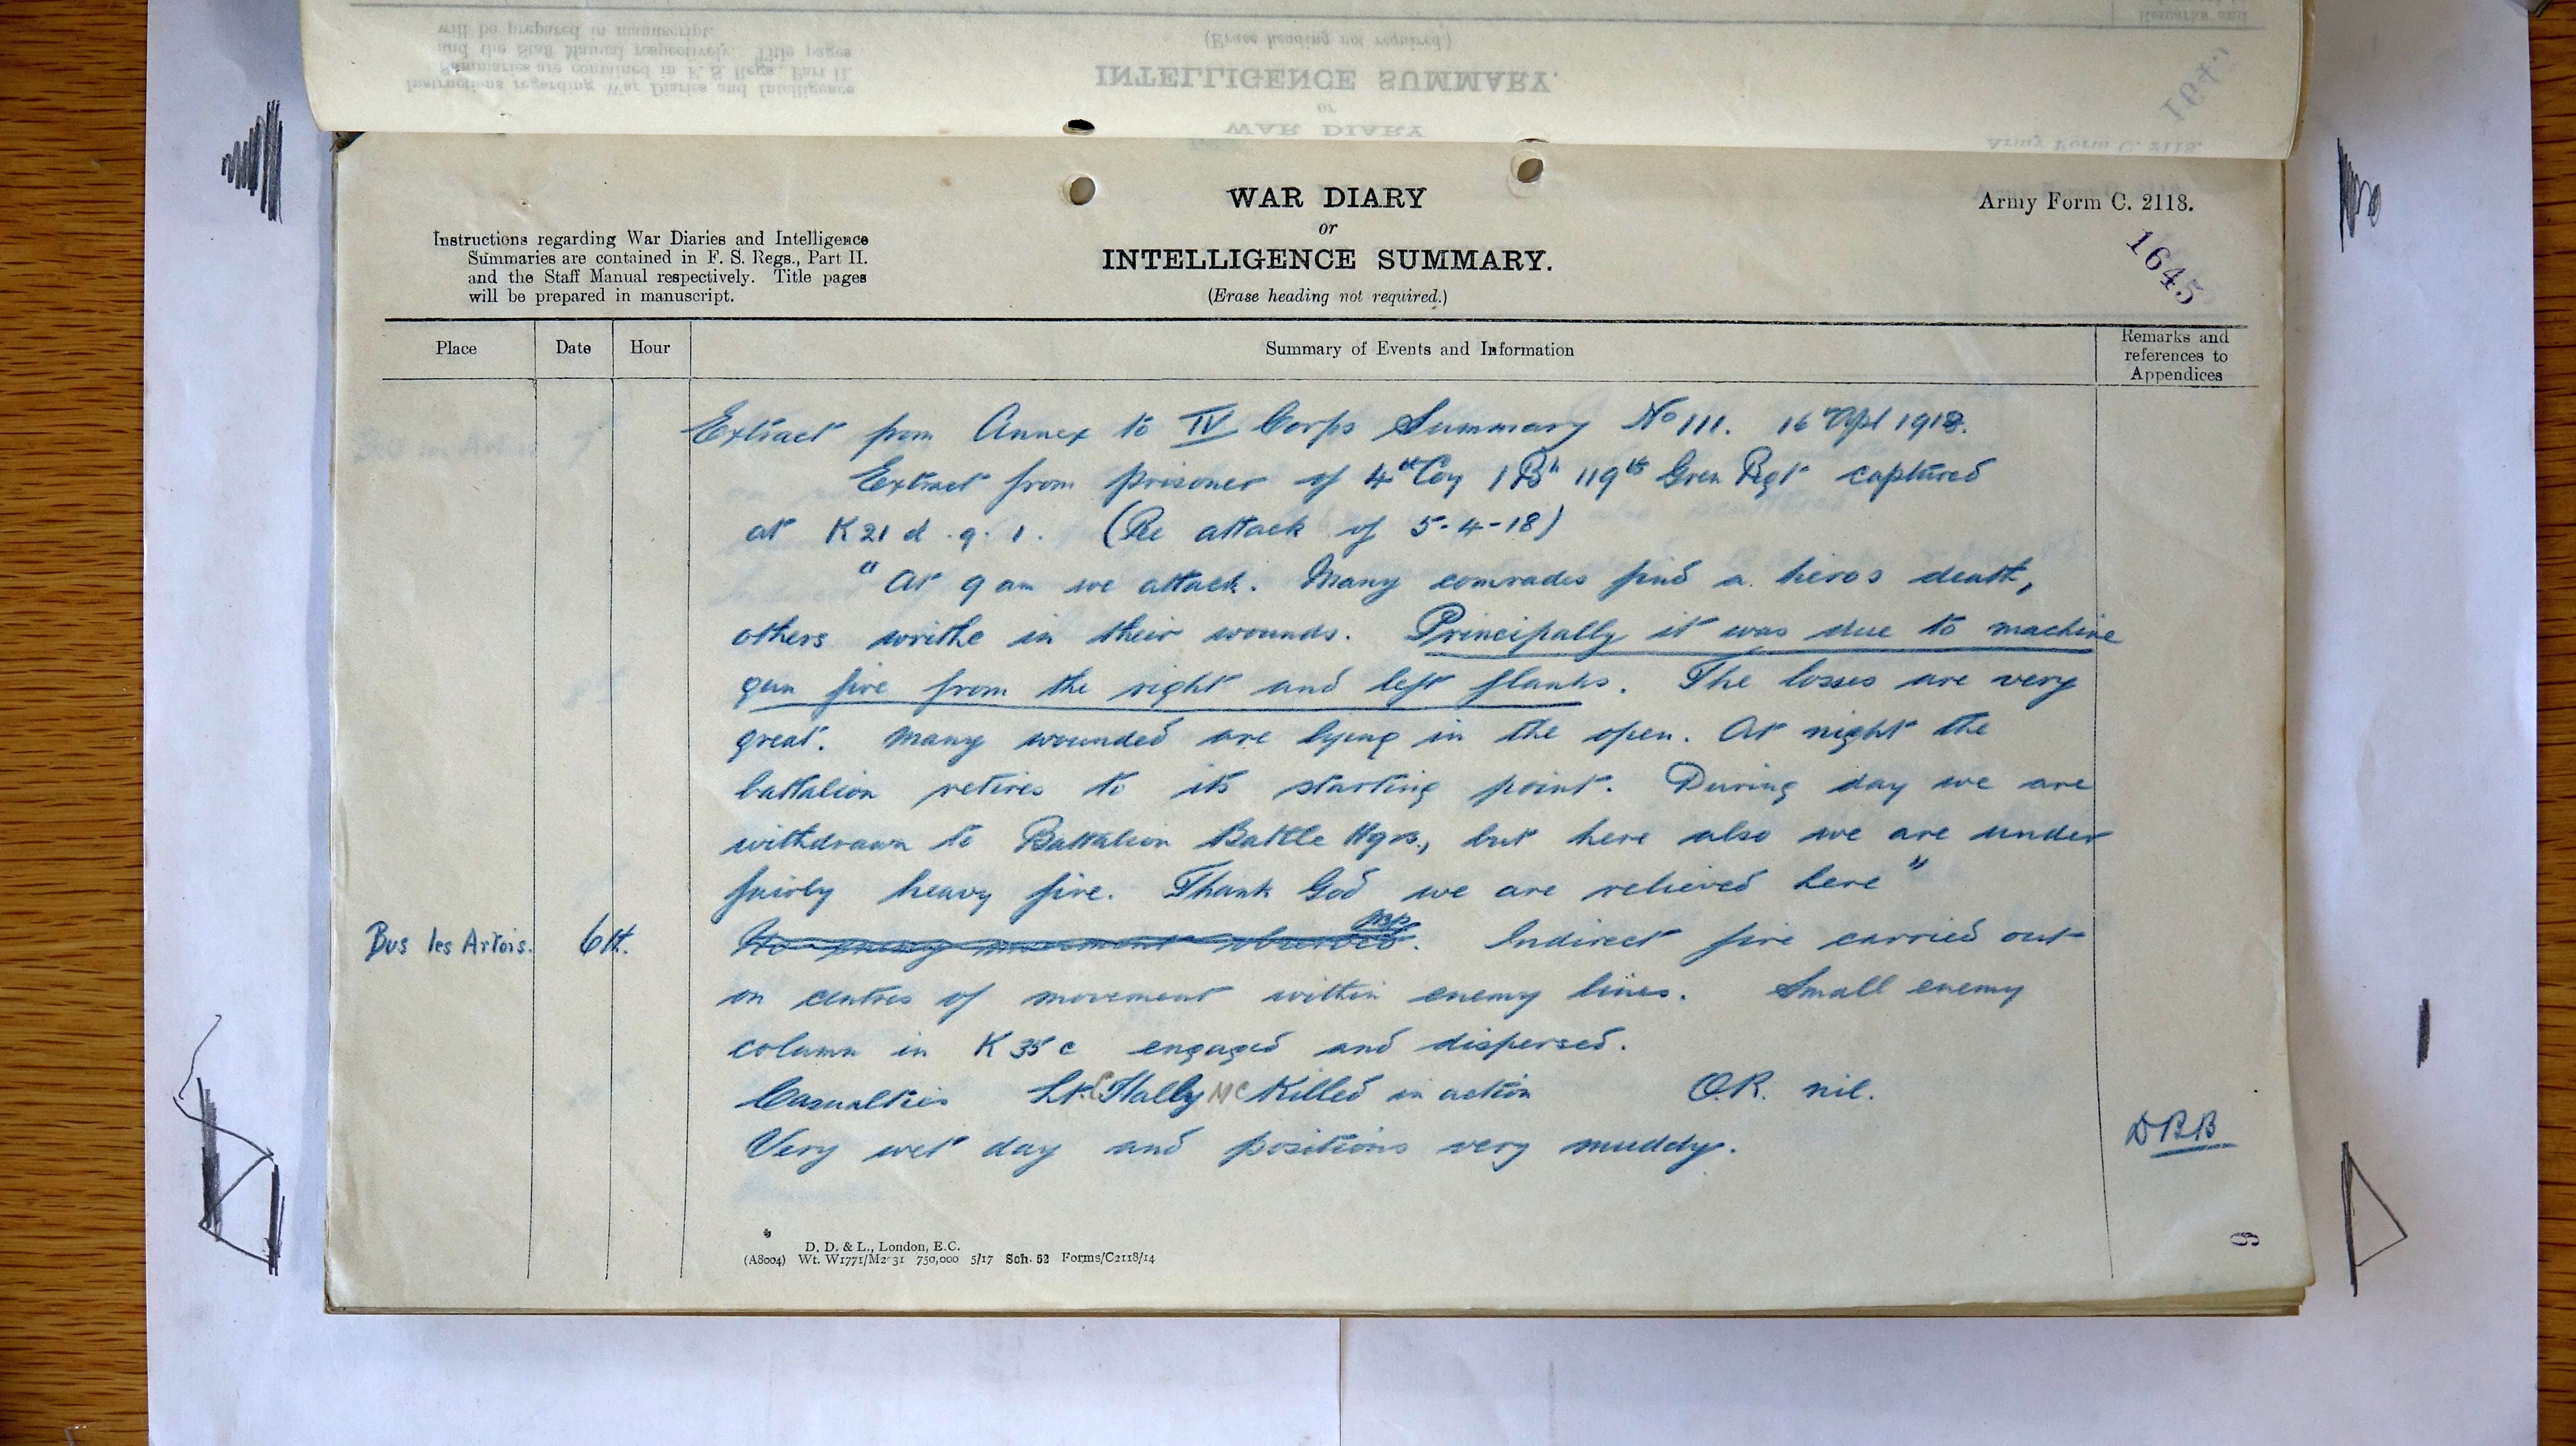 WAR DIARY
or
INTELLIGENCE SUMMARY.
(Erase heading not required.)
Army Form C. 2118.
1645
Instructions regarding War Diaries and Intelligence
Summaries are contained in F. S. Regs., Part II.
and the Staff Manual respectively. Title pages
will be prepared in manuscript.
Place Date Hour Summary of Events and Information Remarks and references to Appendices
Extract from Annex to IV Corps Summary No 111. 16 Apl 1918.
Extract from prisoner of 4th Coy 1 Bn 119th Gren Regt captured
at K 21 d . 9 . 1 . (Re attack of 5-4-18)
"At 9 am we attack. Many comrades find a heros death,
others writhe in their wounds. Principally it was due to machine
gun fire from the right and left flanks. The losses are very
great. Many wounded are lying in the open. At night the
battalion retires to its starting point. During day we are
withdrawn to Battalion Battle Hqrs., but here also we are under
fairly heavy fire. Thank God we are relieved here"
Bus les Artois. 6th. No enemy movement observed. Indirect fire carried out
on centres of movement within enemy lines. Small enemy
column in K 35 c engaged and dispersed.
Casualties Lt. C Hally MC Killed in action O.R. nil.
Very wet day and positions very muddy.
DBB
9
D. D. & L., London, E.C.
(A8004) Wt. W1771/M2031 750,000 5/17 Sch. 52 Forms/C2118/14